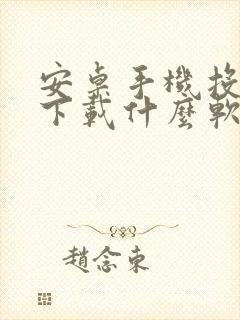 安桌手機投
下載什麼軟
趙念東